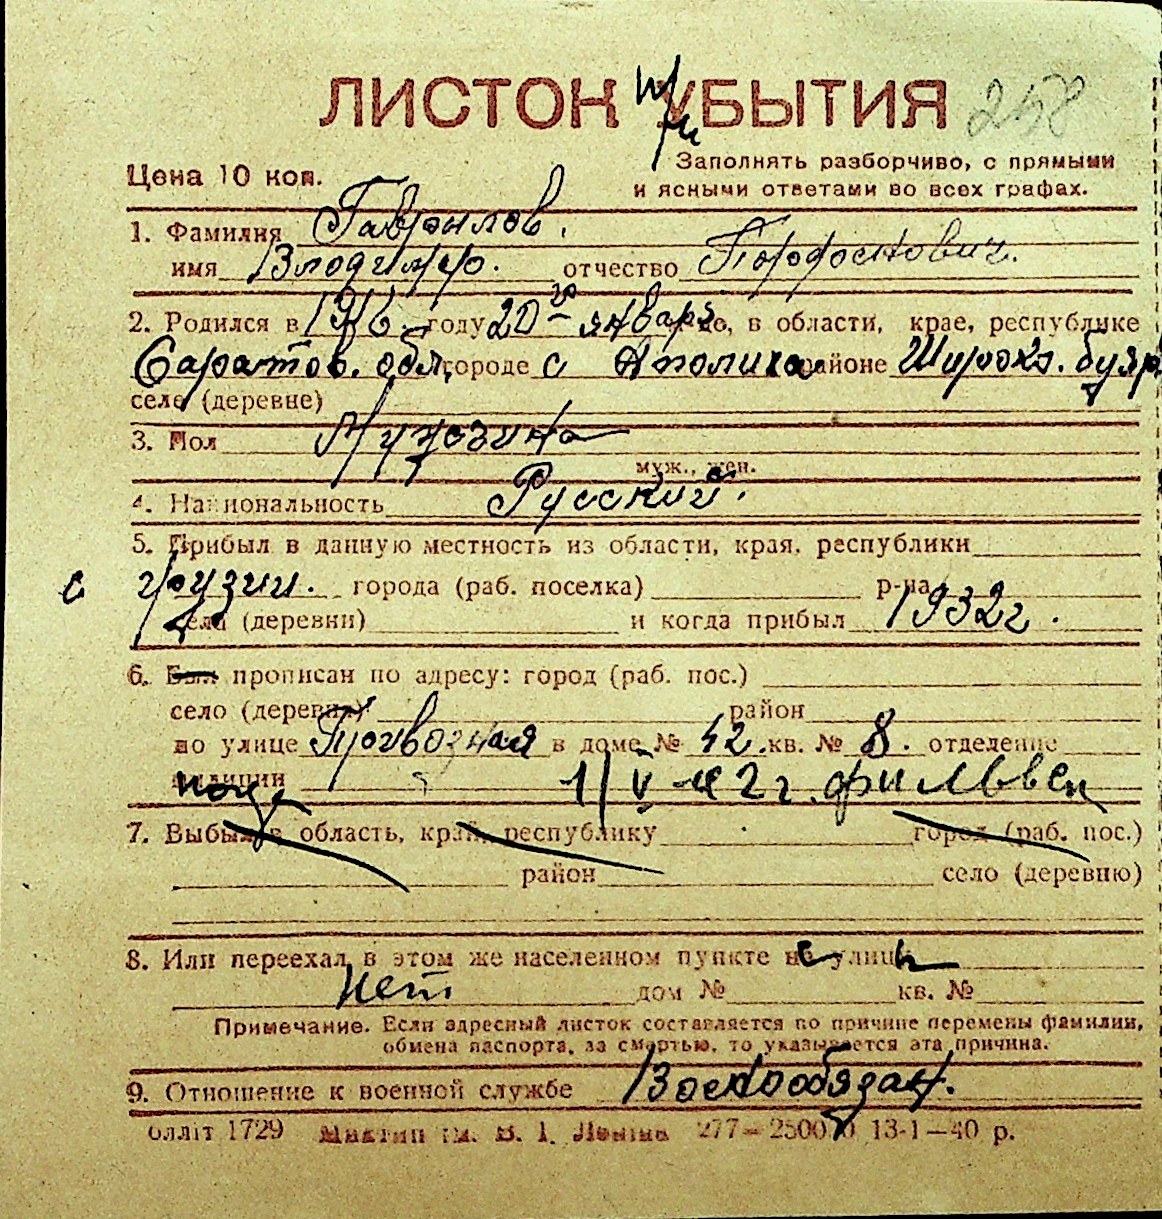 ЛИСТОК УБЫТИЯ 258
Цена 10 коп.
Заполнять разборчиво, с прямыми
и ясными ответами во всех графах.
1. Фамилия Гаврилов.
имя Владимир. отчество
2. Родился в 1916 году 20го января, в области, крае, республике
Саратов. обл. городе с Аполиха районе Широко. буяр
селе (деревне)
3. Пол Мужчина
муж., жен.
4. Национальность Русский.
5. Прибыл в данную местность из области, края, республики
с грузии. города (раб. поселка) р-на
села (деревни) и когда прибыл 1932г.
6. Был прописан по адресу: город (раб. пос.)
село (деревня) район
по улице Привозная в доме № 42. кв. № 8. отделение
милиции 1/V
7. Выбыл в область, край, республику город (раб. пос.)
район село (деревню)
8. Или переехал в этом же населенном пункте на улицу
Нет дом № кв. №
Примечание. Если адресный листок составляется по причине перемены фамилии,
обмена паспорта, за смертью, то указывается эта причина.
9. Отношение к военной службе Военнообязан.
олліт 1729 им. В. І. Леніна 277— 13-1—40 р.